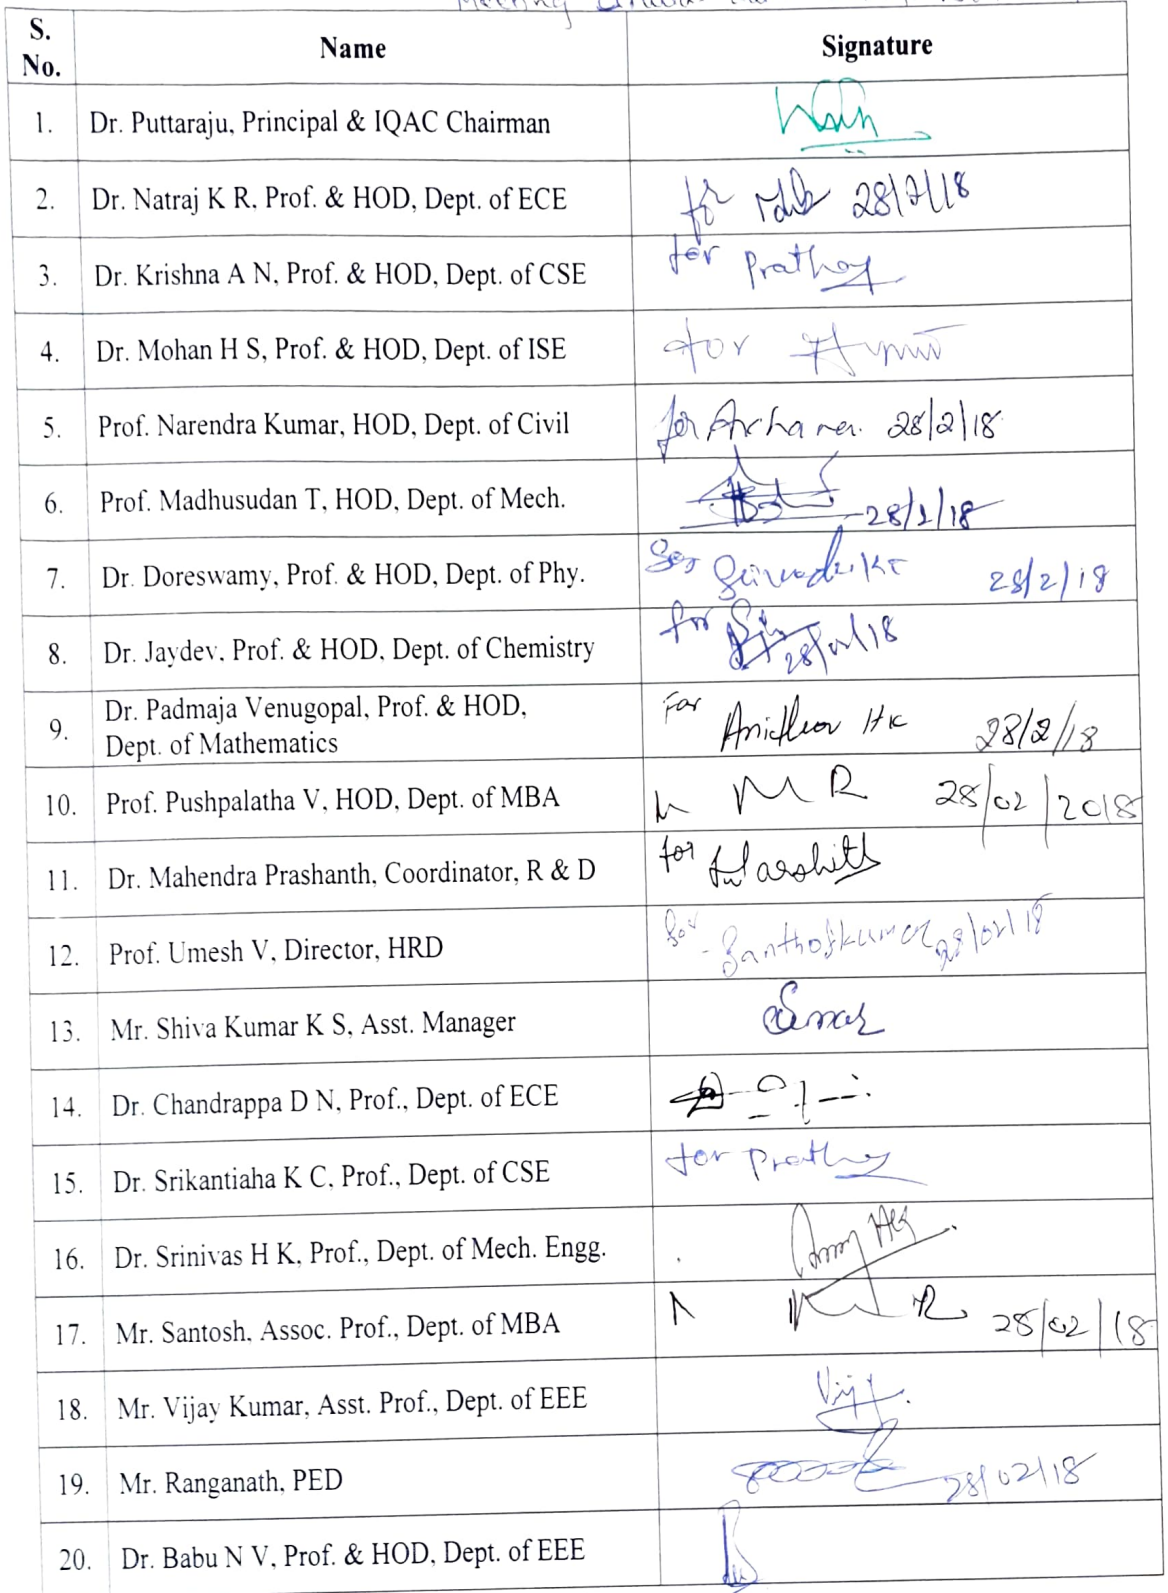 Meeting
S. No. Name Signature
1. Dr. Puttaraju, Principal & IQAC Chairman
2. Dr. Natraj K R, Prof. & HOD, Dept. of ECE for 28/2/18
3. Dr. Krishna A N, Prof. & HOD, Dept. of CSE for Prathay
4. Dr. Mohan H S, Prof. & HOD, Dept. of ISE for
5. Prof. Narendra Kumar, HOD, Dept. of Civil for Archana. 28/2/18
6. Prof. Madhusudan T, HOD, Dept. of Mech. 28/2/18
7. Dr. Doreswamy, Prof. & HOD, Dept. of Phy. 28/2/18
8. Dr. Jaydev, Prof. & HOD, Dept. of Chemistry for 28/02/18
9. Dr. Padmaja Venugopal, Prof. & HOD,
Dept. of Mathematics For HK 28/2/18
10. Prof. Pushpalatha V, HOD, Dept. of MBA MR 28/02/2018
11. Dr. Mahendra Prashanth, Coordinator, R & D for Harshith
12. Prof. Umesh V, Director, HRD for Santhoshkumar 28/02/18
13. Mr. Shiva Kumar K S, Asst. Manager
14. Dr. Chandrappa D N, Prof., Dept. of ECE
15. Dr. Srikantiaha K C, Prof., Dept. of CSE for Prathay
16. Dr. Srinivas H K, Prof., Dept. of Mech. Engg.
17. Mr. Santosh, Assoc. Prof., Dept. of MBA 28/02/18
18. Mr. Vijay Kumar, Asst. Prof., Dept. of EEE
19. Mr. Ranganath, PED 28/02/18
20. Dr. Babu N V, Prof. & HOD, Dept. of EEE